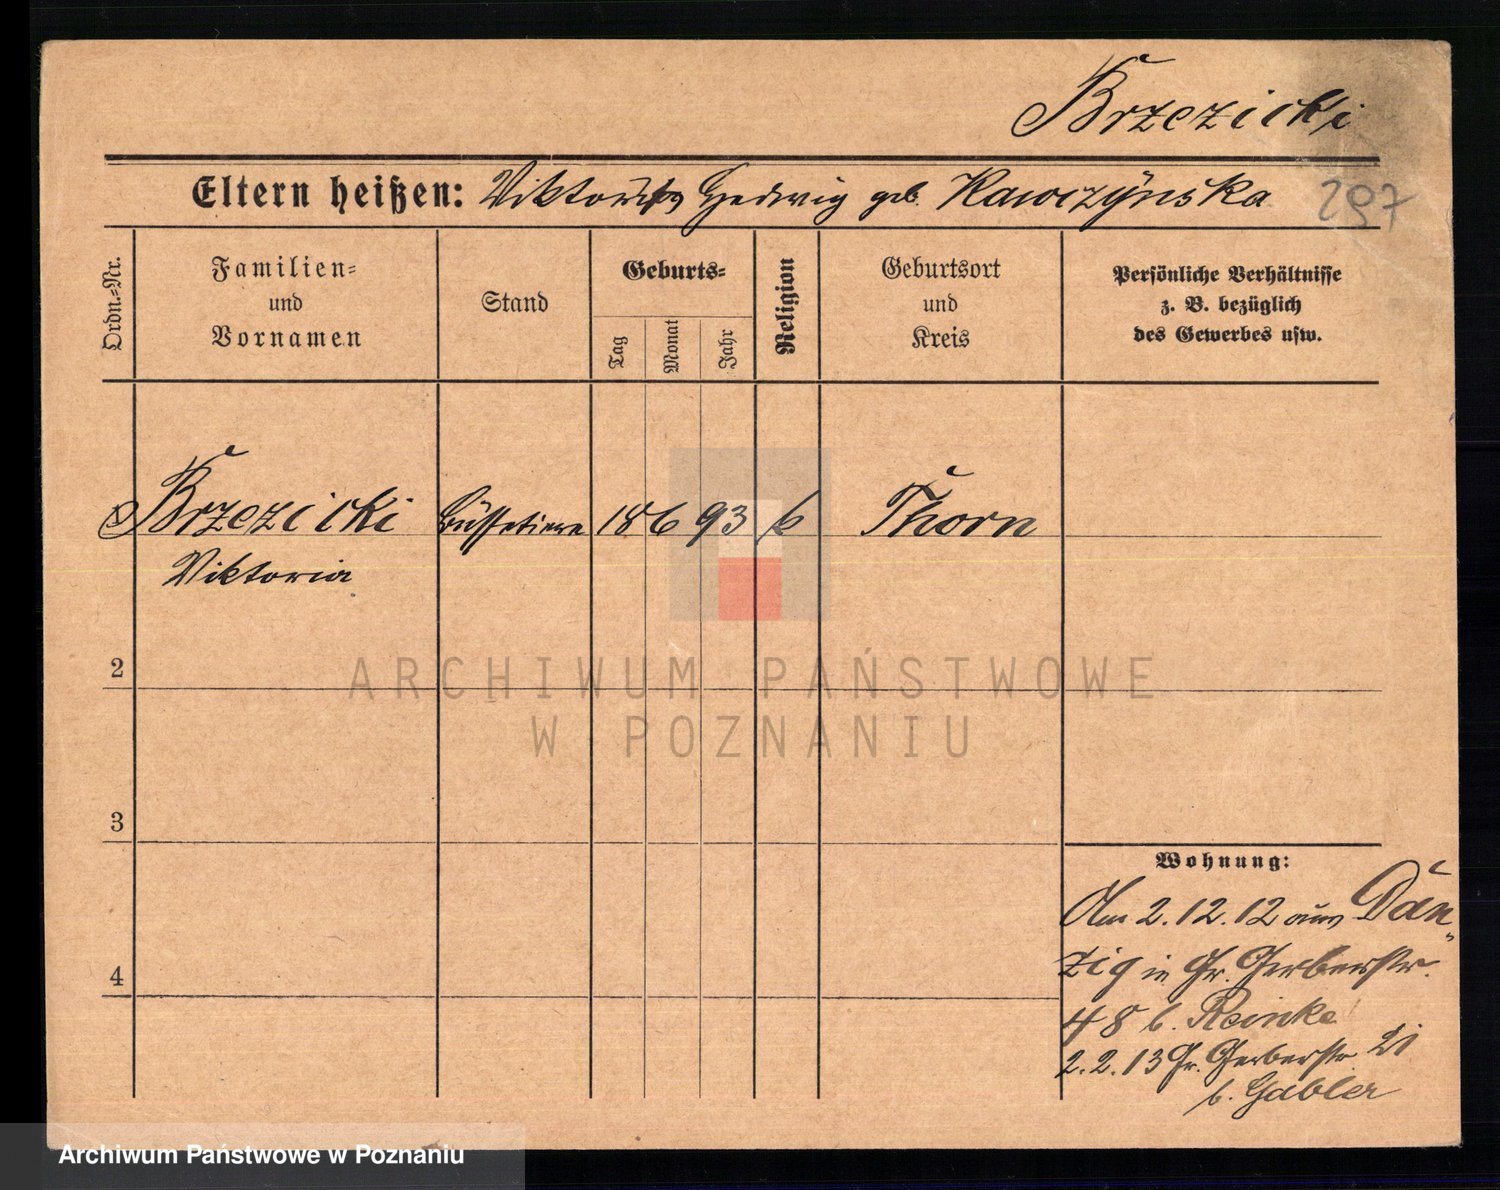 Brzezicki
Eltern heißen: Viktor u. Hedwig geb. Kawczynska
297
Ordn.=Nr.
Familien=
und
Vornamen
Stand
Geburts=
Tag
Monat
Jahr
Religion
Geburtsort
und
Kreis
Persönliche Verhältnisse
z. B. bezüglich
des Gewerbes usw.
Brzezicki Büffetiere 18 6 93 k Thorn
Viktoria
2
3
4
Wohnung:
Am 2.12.12 aus Dan=
zig in Gr. Gerberstr.
48 b. Reinke
2.2.13 Gr. Gerberstr. 21
b. Gabler
ARCHIWUM PAŃSTWOWE
W POZNANIU
Archiwum Państwowe w Poznaniu